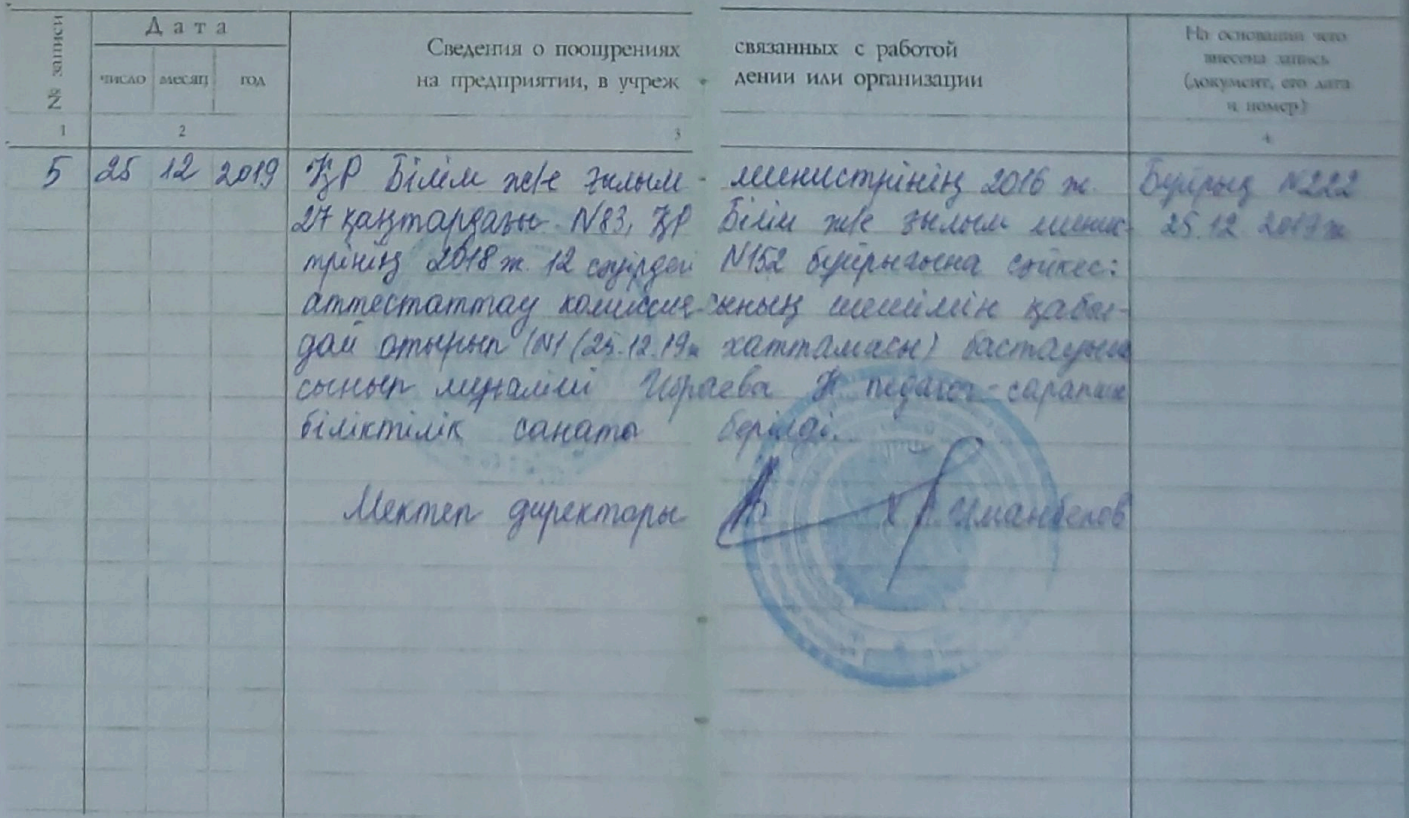 № записи
Дата
число месяц год
Сведения о поощрениях связанных с работой
на предприятии, в учреж дении или организации
На основании чего
внесена запись
(документ, его дата
и номер)
1 2 3 4
5 25 12 2019 ҚР Білім және ғылым - министрінің 2016 ж. Бұйрық N222
27 қаңтардағы N83, ҚР Білім және ғылым минис- 25.12 2019 ж
трінің 2018 ж. 12 сәуірдегі N152 бұйрығына сәйкес:
аттестаттау комиссия-сының шешімін қабыл-
дай отырып (N1 (25.12.19ж хаттамасы) бастауыш
сынып мұғалімі Ибраева Ж педагог-сарапшы
біліктілік санаты берілді.
Мектеп директоры Иманбеков